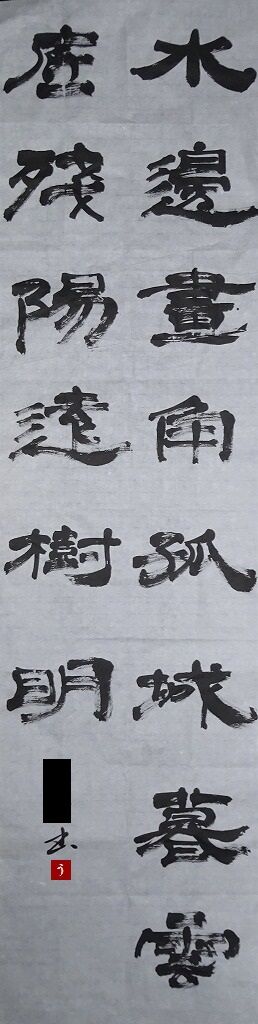 水邊畫角孤城暮雲
底殘陽遠樹明
书
う